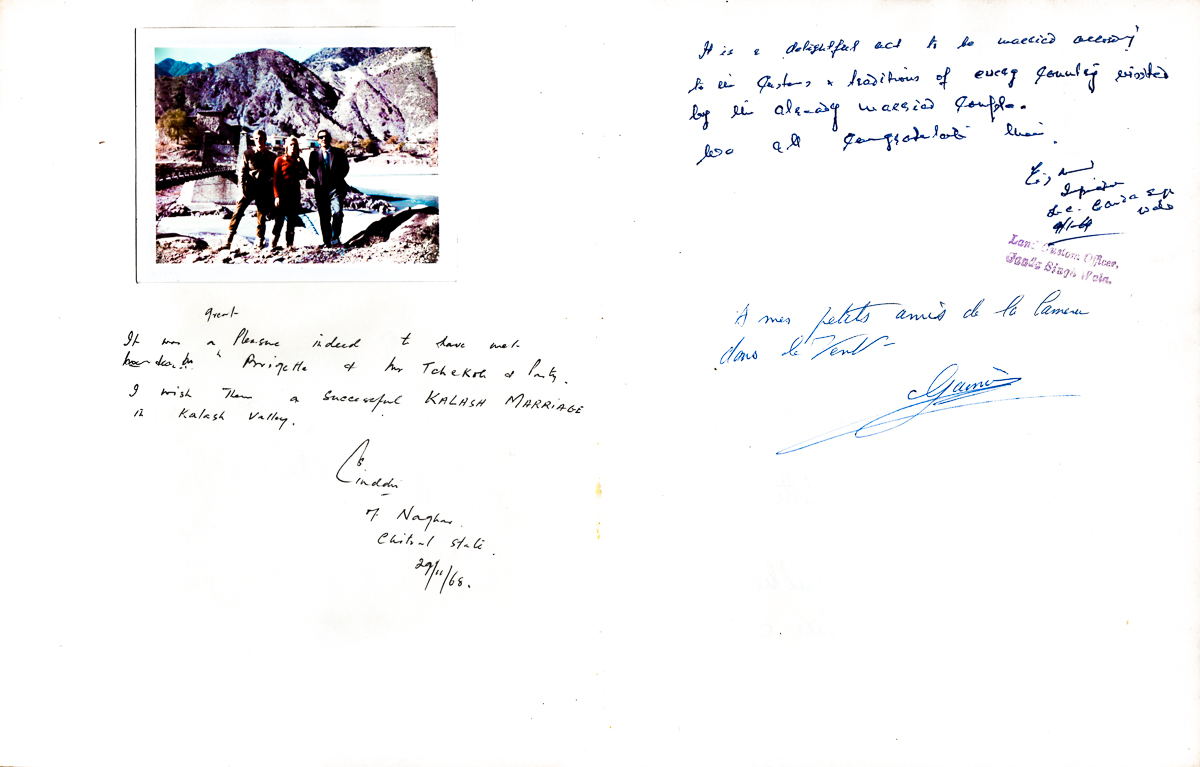 great
It was a Pleasure indeed to have met
Brigette & Tchekof & Party.
I wish Them a successful KALASH MARRIAGE
in Kalash Valley.
of Naghar.
Chitral State.
29/11/68.
It is a delightful act to be married
to customs & traditions of every country visited
by already married couple.
we all congratulate them.
9/1-69
Land Custom Officer,
Janda Singh Wala.
A mes petits amis de la Camera
dans le Vent